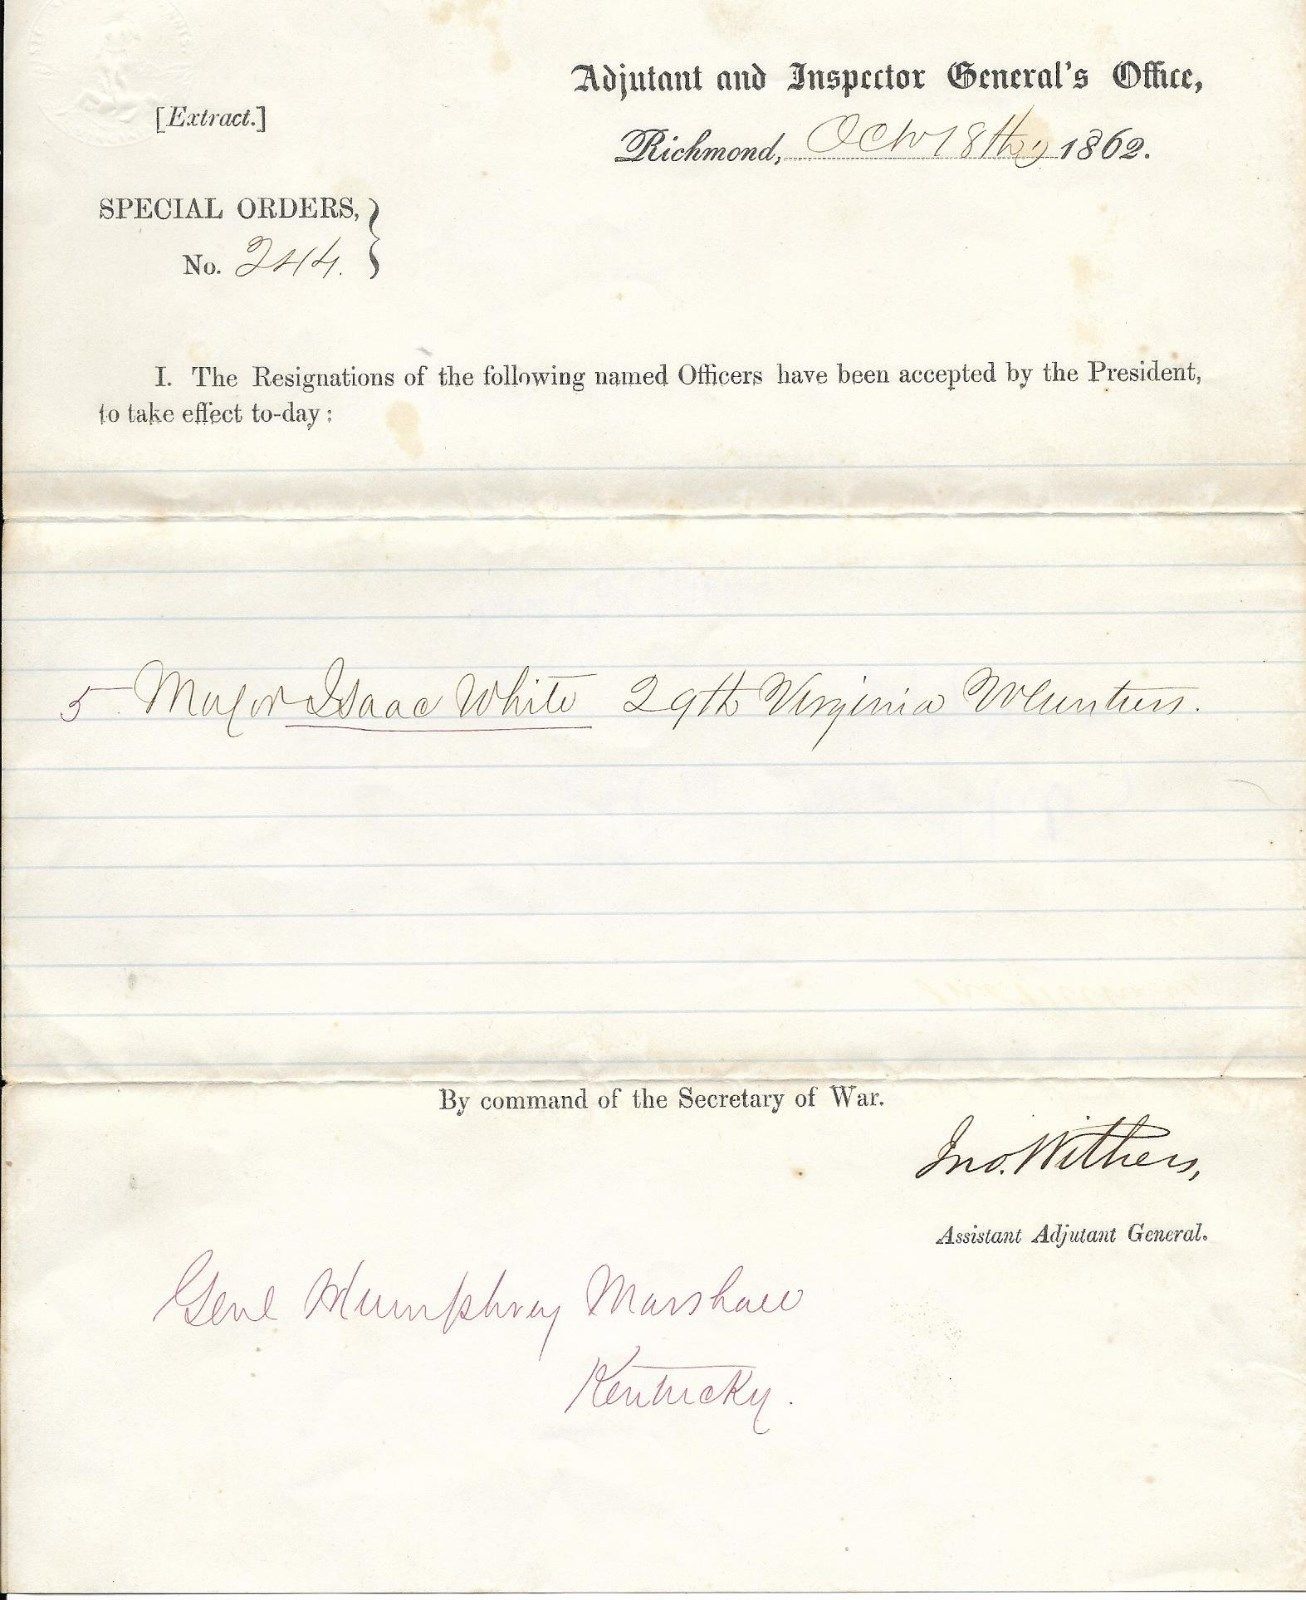 Adjutant and Inspector General's Office,
[Extract.]
Richmond, Oct 18th, 1862.
SPECIAL ORDERS,
No. 244.
I. The Resignations of the following named Officers have been accepted by the President,
to take effect to-day:
5 Major Isaac White 29th Virginia Volunteers.
By command of the Secretary of War.
Jno. Withers,
Assistant Adjutant General.
Genl Humphrey Marshall
Kentucky.